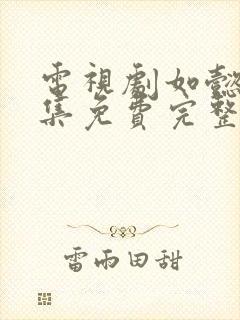 電視劇如懿
集免費完整
雷雨田甜